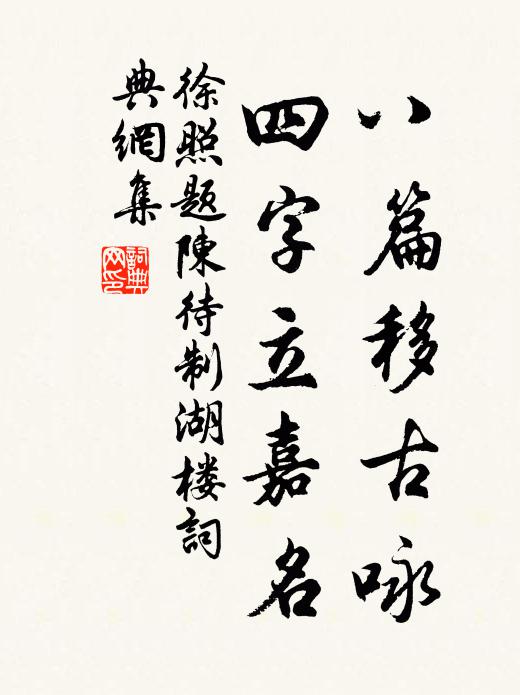 八篇移古咏
四字立嘉名
徐照题陳待制湖楼詞
典網集
詞典
网印